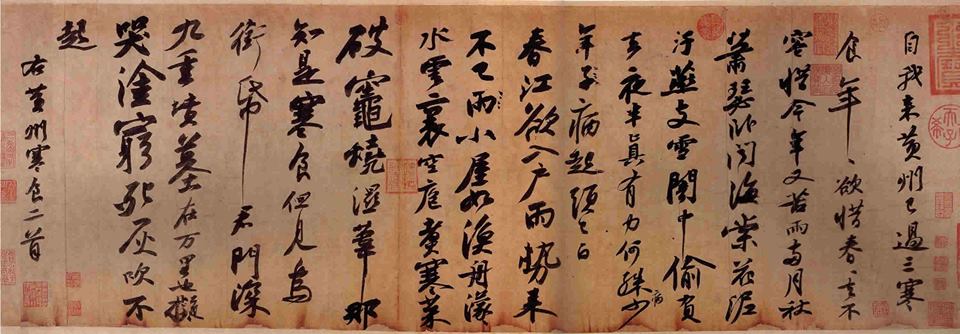 自我来黄州已過三寒
食年〻欲惜春〻去不
容惜今年又苦雨兩月秋
蕭瑟卧聞海棠花泥
汙燕支雪闇中偷負
去夜半真有力何殊少
病
年子病起頭已白
春江欲入户雨勢来
不已雨小屋如漁舟濛〻
水雲裏空庖煑寒菜
破竈燒濕葦那
知是寒食但見烏
銜帋君門深
九重墳墓在万里也擬
哭塗窮死灰吹不
起
右黄州寒食二首